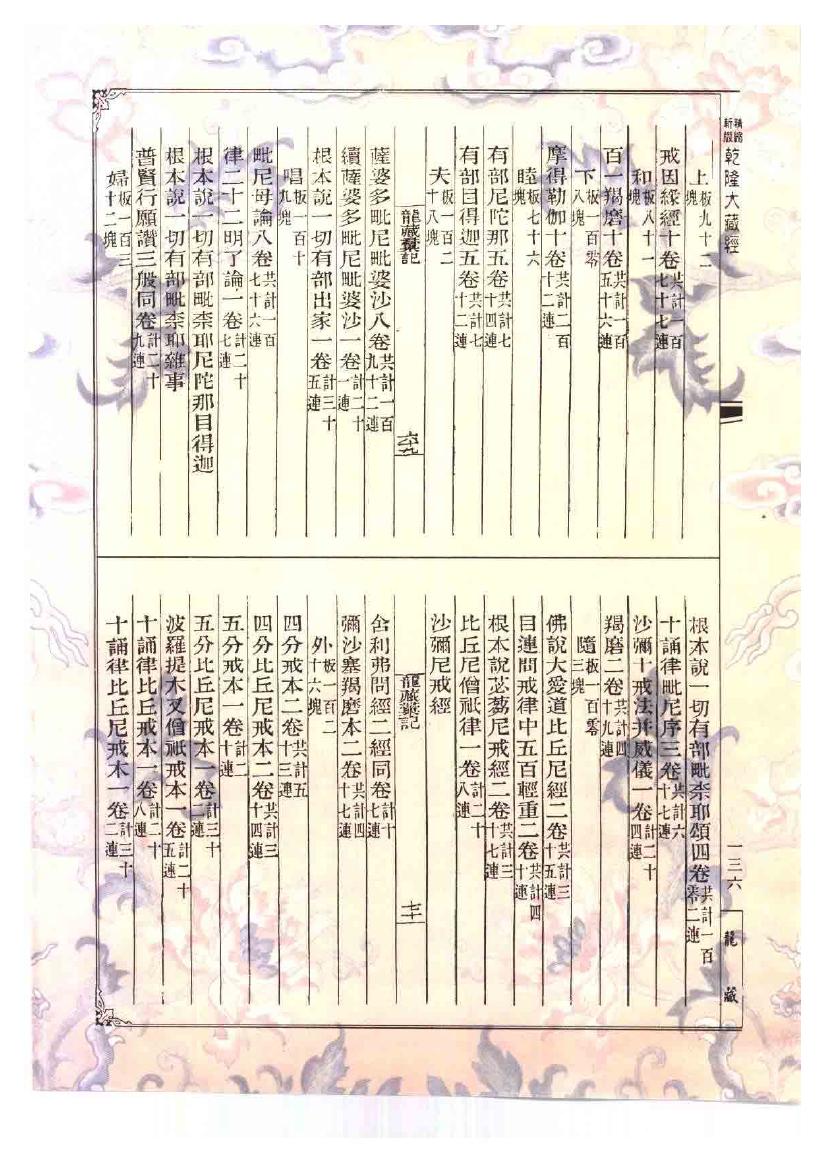 精縮
新版
乾隆大藏經
上板九十二塊
戒因緣經十卷共計一百七十七連
和板八十一塊
百一羯磨十卷共計一百五十六連
下板一百零八塊
摩得勒伽十卷共計二百十二連
睦板七十六塊
有部尼陀那五卷共計七十四連
有部目得迦五卷共計七十二連
夫板一百二十八塊
龍藏彙記
六九
薩婆多毗尼毗婆沙八卷共計一百九十二連
續薩婆多毗尼毗婆沙一卷計二十一連
根本說一切有部出家一卷計三十五連
唱板一百十九塊
毗尼母論八卷共計一百七十六連
律二十二明了論一卷計二十七連
根本說一切有部毗柰耶尼陀那目得迦
根本說一切有部毗柰耶雜事
普賢行願讚三般同卷計二十九連
婦板一百三十二塊
根本說一切有部毗柰耶頌四卷共計一百零二連
十誦律毗尼序三卷共計六十七連
沙彌十戒法并威儀一卷計二十四連
羯磨二卷共計四十九連
隨板一百零三塊
佛說大愛道比丘尼經二卷共計三十五連
目連問戒律中五百輕重二卷共計四十連
根本說苾蒭尼戒經二卷共計三十七連
比丘尼僧祇律一卷計二十八連
沙彌尼戒經
龍藏彙記
七十
舍利弗問經二經同卷計十七連
彌沙塞羯磨本二卷共計四十七連
外板一百二十六塊
四分戒本二卷共計五十三連
四分比丘尼戒本二卷共計三十四連
五分戒本一卷計二十連
五分比丘尼戒本一卷計三十二連
波羅提木叉僧祇戒本一卷計二十五連
十誦律比丘戒本一卷計二十八連
十誦律比丘尼戒本一卷計三十二連
一三六
龍藏